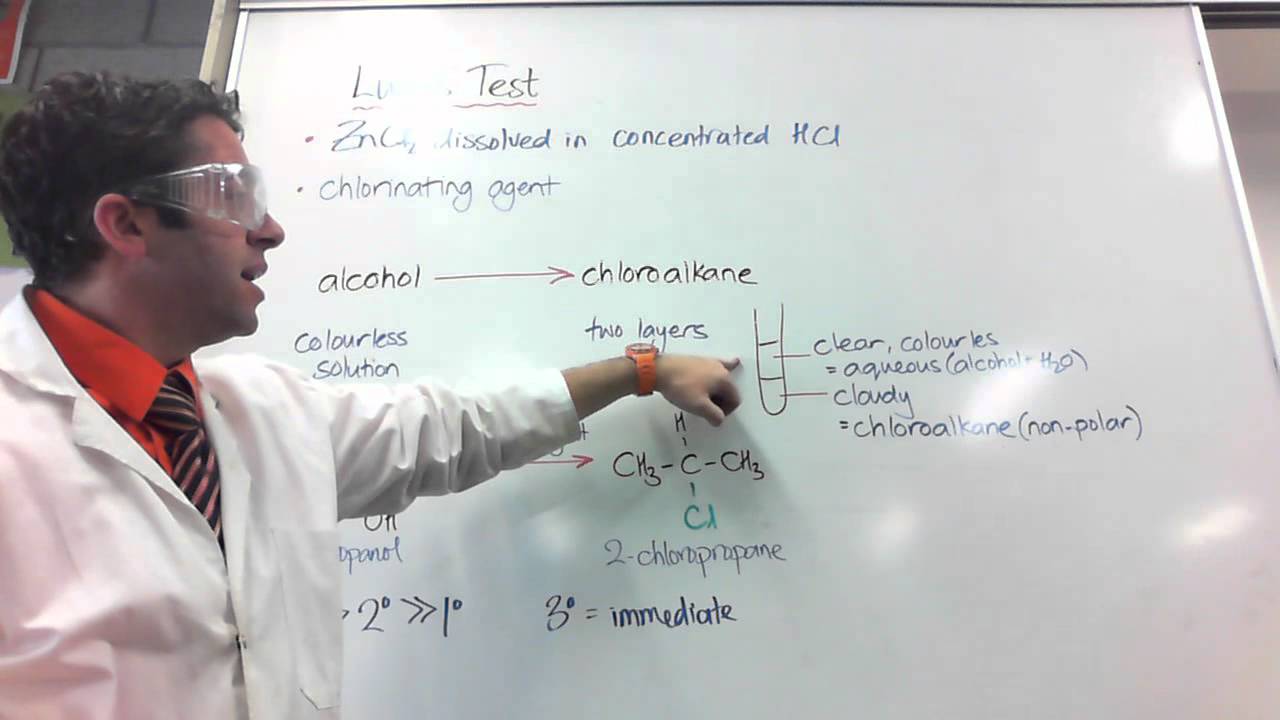 Test
• ZnCl₂ dissolved in concentrated HCl
• chlorinating agent
alcohol → chloroalkane
colourless
solution
two layers
clear, colourles
= aqueous (alcohol + H₂O)
cloudy
= chloroalkane (non-polar)
H
CH₃-C-CH₃
Cl
OH
opanol
2-chloropropane
> 2° >> 1°
3° = immediate